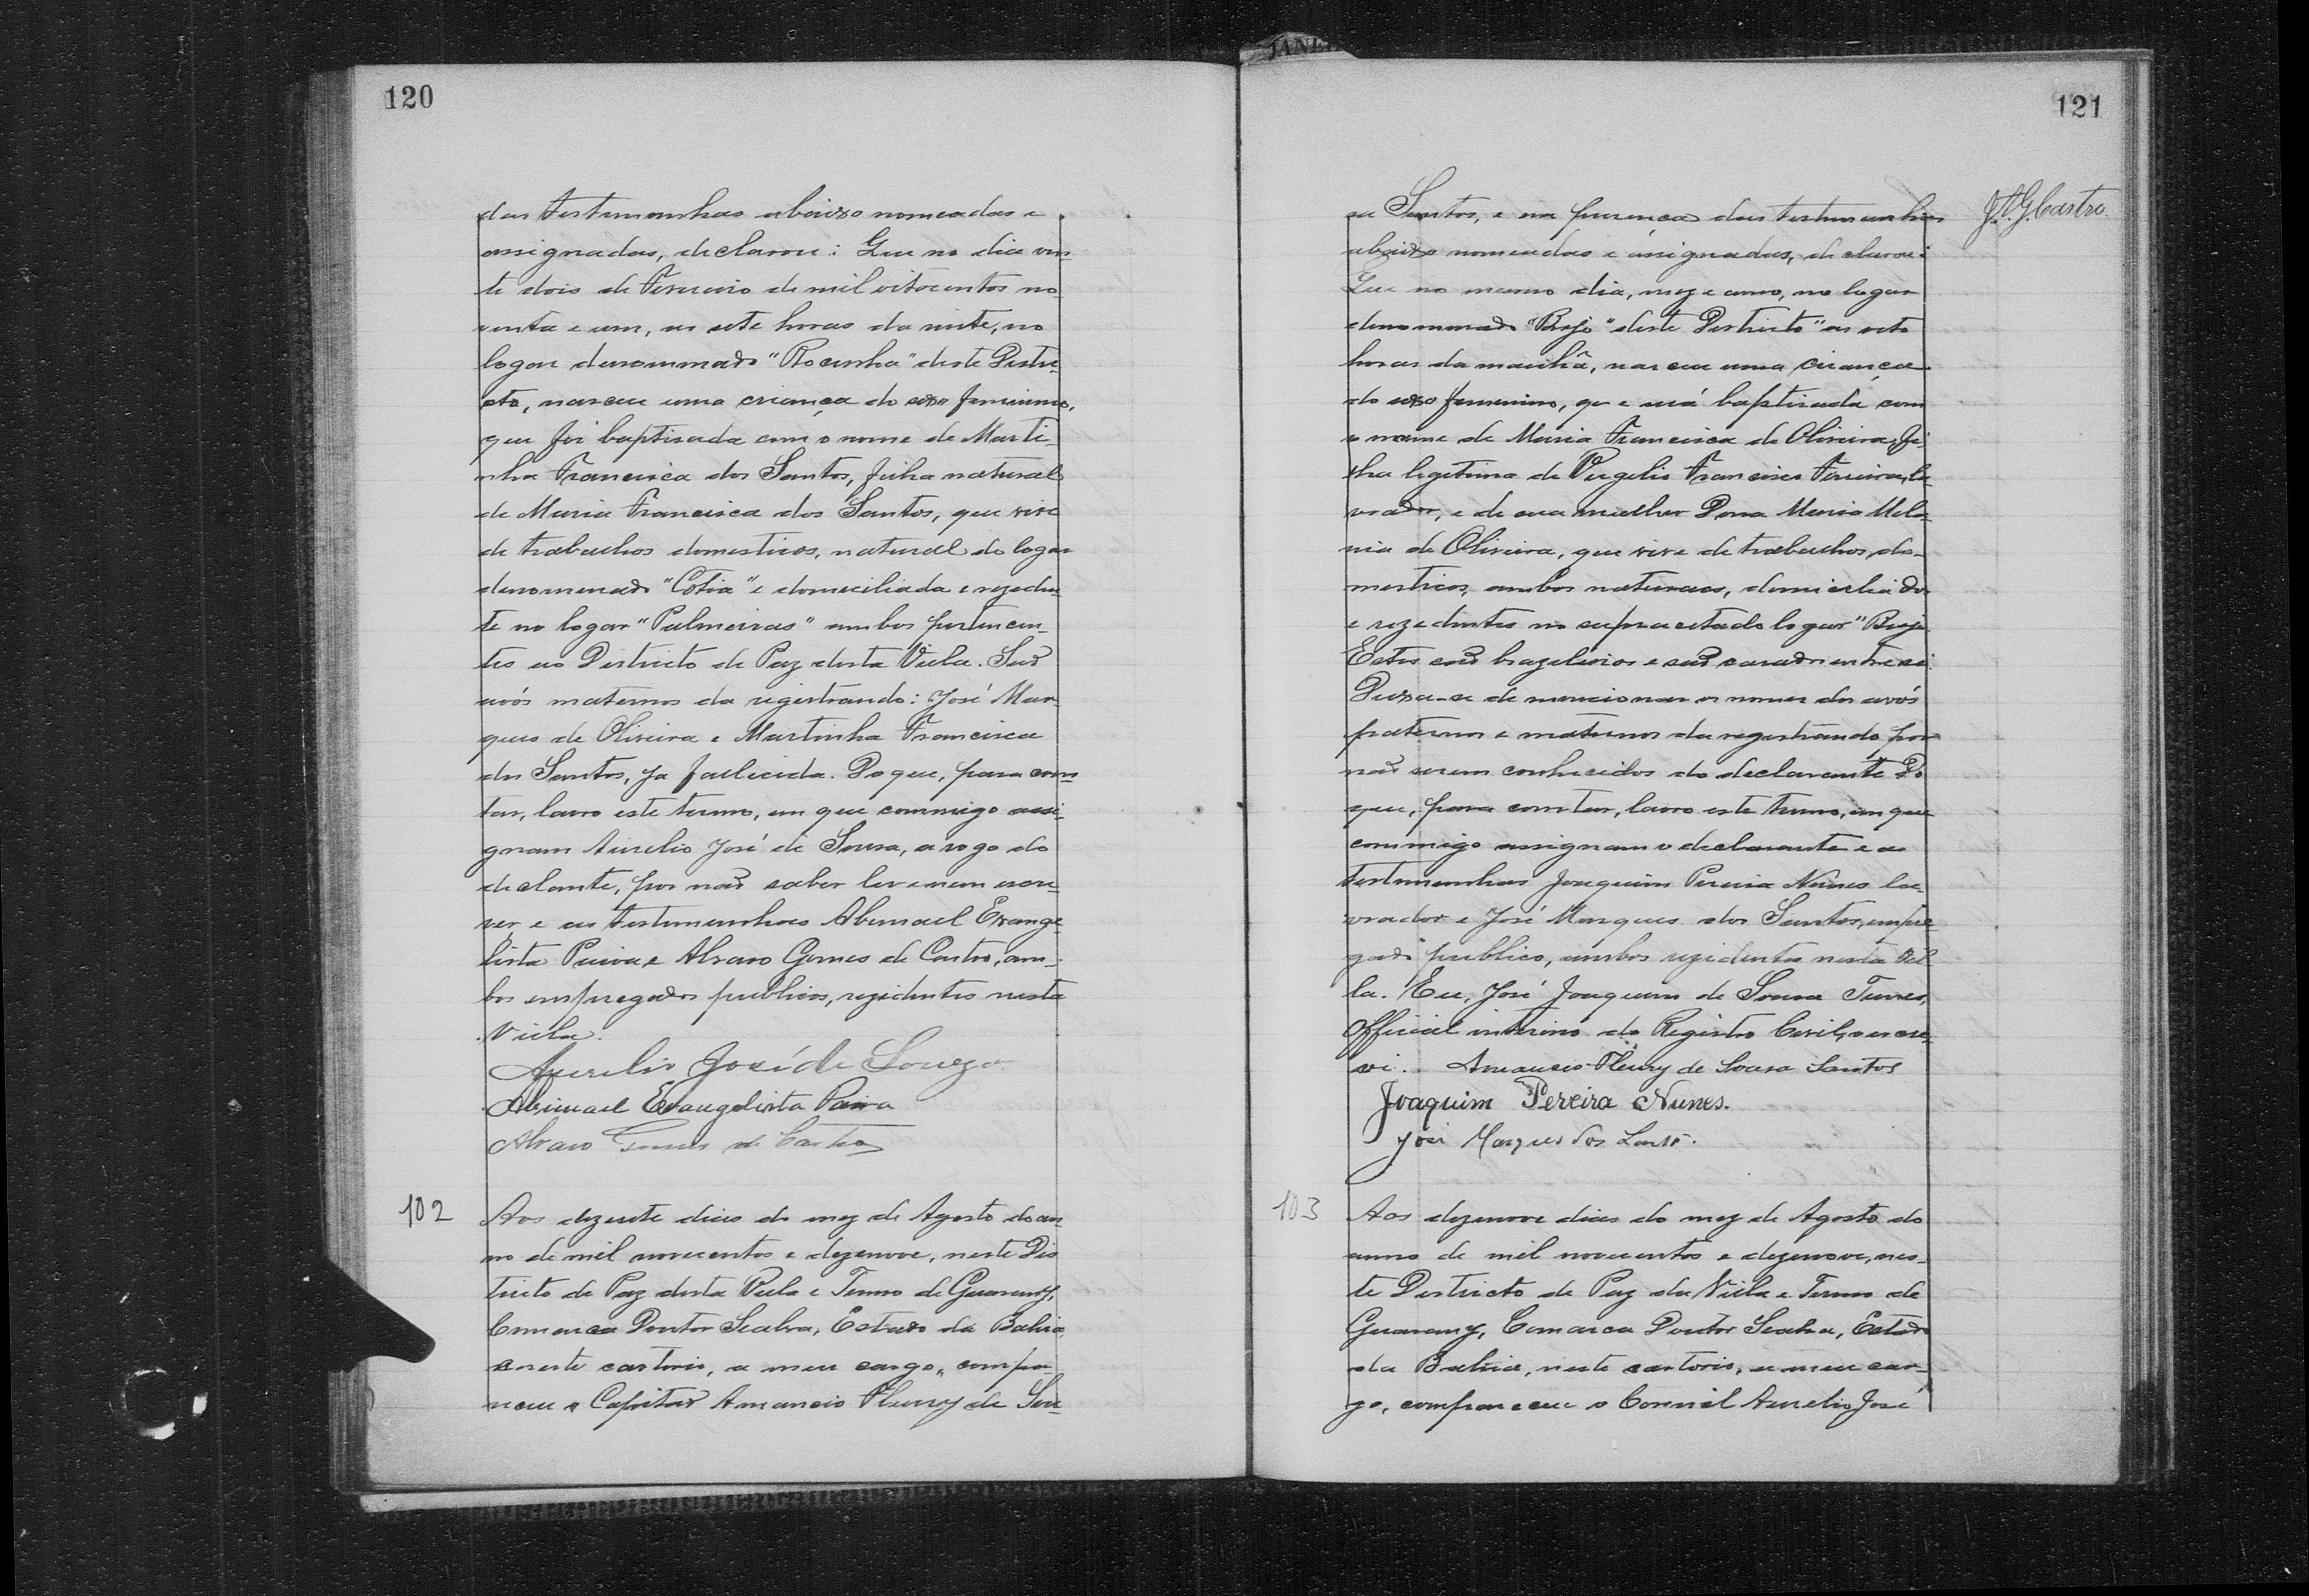 120
das testemunhas abaixo nomeadas e
assignadas, declarou: Que no dia vin-
te dois de Fevereiro de mil oitocentos no
venta e um, as sete horas da noite, no
logar denominado "Rocinha" deste Distri-
cto, nasceu uma criança do sexo feminino,
que foi baptisada com o nome de Marti-
nha Francisca dos Santos, filha natural
de Maria Francisca dos Santos, que vive
de trabalhos domesticos, natural do logar
denominado "Cotia" e domiciliada e reziden-
te no logar "Palmeiras" ambos pertencen-
tes ao Districto de Paz desta Villa. São
avós maternos da registrando: José Mar-
ques de Oliveira e Martinha Francisca
dos Santos, ja fallecida. Do que, para cons
tar, lavro este termo, em que commigo assi-
gnam Aurelio José de Sousa, a rogo do
declante, por não saber ler e nem escre-
ver e as testemunhas Abimael Evange-
lista Paiva e Alvaro Gomes de Castro, am-
bos empregados publicos, rezidentes nesta
Villa.
Aurelio José de Souza
Abimael Evangelista Paiva
Alvaro Gomes de Castro
102
Aos dezesete dias do mez de Agosto do an
no de mil novecentos e dezenove, neste Dis
tricto de Paz desta Villa e Termo de Guarany,
Comarca Doutor Seabra, Estado da Bahia,
e neste cartorio, a meu cargo, compa-
receu o Capitão Amancio Fleury de Sou-
121
J. A. G. Castro.
sa Santos, e em presença das testemunhas
abaixo nomeadas e assignadas, declarou:
Que no mesmo dia, mez e anno, no logar
denominado "Brejo" deste Districto" as oito
horas da manhã, nasceu uma criança
do sexo femenino, que será baptisada com
o nome de Maria Francisca de Oliveira, fi-
lha legitima de Virgilio Francisco Ferreira, la-
vrador, e de sua mulher Dona Maria Mela-
nia de Oliveira, que vive de trabalhos do-
mesticos, ambos naturaes, domiciliados
e rezidentes no supracitado logar "Brejo.
Estes são brazileiros e são casados entre si.
Deixa-se de mencionar os nomes dos avós
paternos e maternos da registrando por
não serem conhecidos do declarante Do
que, para constar, lavro este termo, em que
commigo assignam o declarante e as
testemunhas Joaquim Pereira Nunes la-
vrador e José Marques dos Santos, empre
gado publico, ambos rezidentes nesta Vil
la. Eu, José Joaquim de Sousa
Official interino do Registro Civil, o escre-
vi. Amancio Fleury de Sousa Santos
Joaquim Pereira Nunes.
José Marques dos Santos.
103
Aos dezenove dias do mez de Agosto do
anno de mil novecentos e dezenove, nes-
te Districto de Paz da Villa e Termo de
Guarany, Comarca Doutor Seabra, Estado
da Bahia, neste cartorio, a meu car-
go, compareceu o Coronel Aurelio José